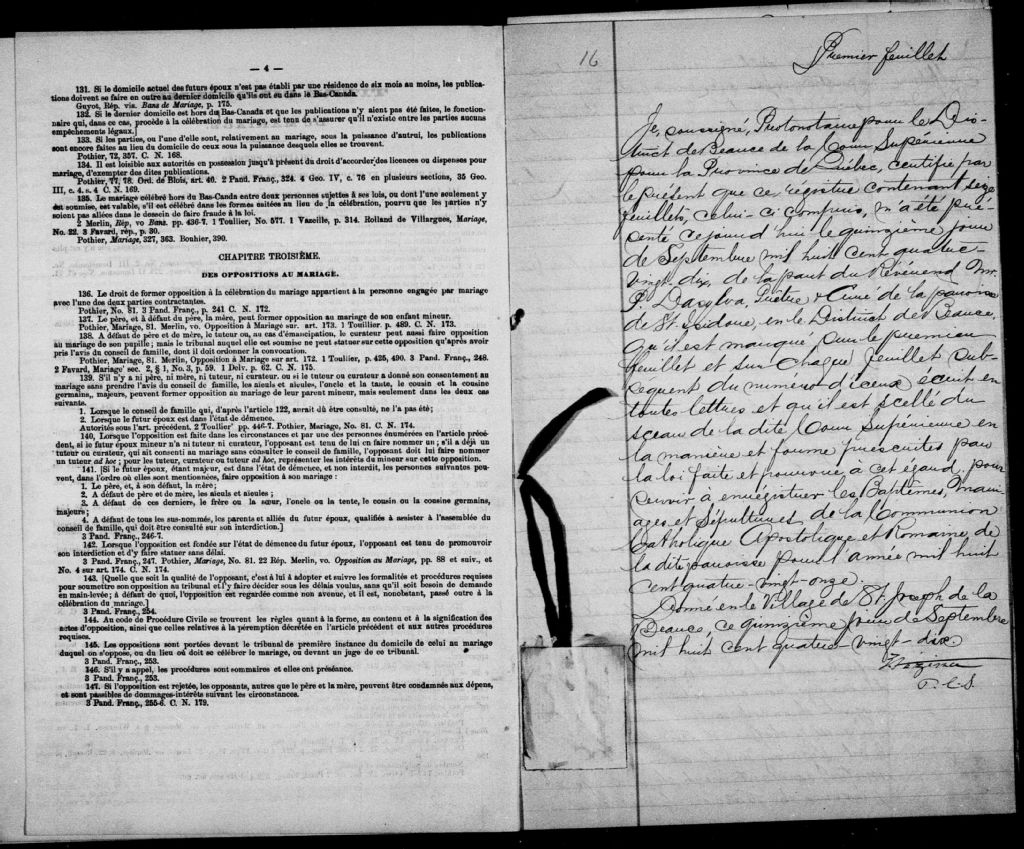 — 4 —
131. Si le domicile actuel des futurs époux n'est pas établi par une résidence de six mois au moins, les publica-
tions doivent se faire en outre au dernier domicile qu'ils ont eu dans le Bas-Canada.
Guyot, Rép. vis. Bans de Mariage, p. 175.
132. Si le dernier domicile est hors du Bas-Canada et que les publications n'y aient pas été faites, le fonction-
naire qui, dans ce cas, procède à la célébration du mariage, est tenu de s'assurer qu'il n'existe entre les parties aucuns
empêchements légaux.]
133. Si les parties, ou l'une d'elle sont, relativement au mariage, sous la puissance d'autrui, les publications
sont encore faites au lieu du domicile de ceux sous la puissance desquels elles se trouvent.
Pothier, 72, 357. C. N. 168.
134. Il est loisible aux autorités en possession jusqu'à présent du droit d'accorder des licences ou dispenses pour
mariage, d'exempter des dites publications.
Pothier, 77, 78. Ord. de Blois, art. 40. 2 Pand. Franç., 324. 4 Geo. IV, c. 76 en plusieurs sections, 35 Geo.
III, c. 4. s. 4 C. N. 169.
135. Le mariage célébré hors du Bas-Canada entre deux personnes sujettes à ses lois, ou dont l'une seulement y
est soumise, est valable, s'il est célébré dans les formes usitées au lieu de la célébration, pourvu que les parties n'y
soient pas allées dans le dessein de faire fraude à la loi.
2 Merlin, Rép, vo Bans. pp. 436-7. 1 Toullier, No. 577. 1 Vazeille, p. 314. Rolland de Villargues, Mariage,
No. 22. 3 Favard, rép., p. 30.
Pothier, Mariage, 327, 363. Bouhier, 390.
CHAPITRE TROISIÈME.
DES OPPOSITIONS AU MARIAGE.
136. Le droit de former opposition à la célébration du mariage appartient à la personne engagée par mariage
avec l'une des deux parties contractantes.
Pothier, No. 81. 3 Pand. Franç., p. 241 C. N. 172.
137. Le père, et à défaut du père, la mère, peut former opposition au mariage de son enfant mineur.
Pothier, Mariage, 81. Merlin, vo. Opposition à Mariage sur. art. 173. 1 Toullier. p. 489. C. N. 173.
138. A défaut de père et de mère, le tuteur ou, au cas d'émancipation, le curateur peut aussi faire opposition
au mariage de son pupille ; mais le tribunal auquel elle est soumise ne peut statuer sur cette opposition qu'après avoir
pris l'avis du conseil de famille, dont il doit ordonner la convocation.
Pothier, Mariage, 81. Merlin, Opposition à Mariage sur art. 172. 1 Toullier, p. 425, 490. 3 Pand. Franç., 248.
2 Favard, Mariage' sec. 2, § 1, No. 3, p. 59. 1 Delv. p. 62. C. N. 175.
139. S'il n'y a ni père, ni mère, ni tuteur, ni curateur. ou si le tuteur ou curateur a donné son consentement au
mariage sans prendre l'avis du conseil de famille, les aieuls et aieules, l'oncle et la tante, le cousin et la cousine
germains,, majeurs, peuvent former opposition au mariage de leur parent mineur, mais seulement dans les deux cas
suivants.
1. Lorsque le conseil de famille qui, d'après l'article 122, aurait dû être consulté, ne l'a pas été;
2. Lorsque le futur époux est dans l'état de démence.
Autorités sous l'art. précédent. 2 Toullier' pp. 446-7. Pothier, Mariage, No. 81. C. N. 174.
140, Lorsque l'opposition est faite dans les circonstances et par une des personnes énumérées en l'article précé-
dent, si le futur époux mineur n'a ni tuteur ni curateur, l'opposant est tenu de lui en faire nommer un ; s'il a déjà un
tuteur ou curateur, qui ait consenti au mariage sans consulter le conseil de famille, l'opposant doit lui faire nommer
un tuteur ad hoc ; pour les tuteur, curateur ou tuteur ad hoc, représenter les intérêts du mineur sur cette opposition.
141. [Si le futur époux, étant majeur, est dans l'état de démence, et non interdit, les personnes suivantes peu-
vent, dans l'ordre où elles sont mentionnées, faire opposition à son mariage :
1. Le père, et, à son défaut, la mère ;
2. A défaut de père et de mère, les aieuls et aieules ;
3. A défaut de ces derniers, le frère ou la sœur, l'oncle ou la tente, le cousin ou la cousine germains,
majeurs;
4. A défaut de tous les sus-nommés, les parents et alliés du futur époux, qualifiés à assister à l'assemblée du
conseil de famille, qui doit être consulté sur son interdiction.]
3 Pand. Franç., 246-7.
142. Lorsque l'opposition est fondée sur l'état de démence du futur époux, l'opposant est tenu de promouvoir
son interdiction et d'y faire statuer sans délai.
3 Pand. Franç., 247. Pothier, Mariage, No. 81. 22 Rép. Merlin, vo. Opposition au Mariage, pp. 88 et suiv., et
No. 4 sur art. 174. C. N. 174.
143. [Quelle que soit la qualité de l'opposant, c'est à lui à adopter et suivre les formalités et procédures requises
pour soumettre son opposition au tribunal et l'y faire décider sous les délais voulus, sans qu'il soit besoin de demande
en main-levée; à défaut de quoi, l'opposition est regardée comme non avenue, et il est, nonobstant, passé outre à la
célébration du mariage.]
3 Pand. Franç., 254.
144. Au code de Procédure Civile se trouvent les règles quant à la forme, au contenu et à la signification des
actes d'opposition, ainsi que celles relatives à la péremption décrétée en l'article précédent et aux autres procédures
requises.
145. Les oppositions sont portées devant le tribunal de première instance du domicile de celui au mariage
duquel on s'oppose, ou du lieu où doit se célébrer le mariage, ou devant un juge de ce tribunal.
3 Pand. Franç., 253.
146. S'il y a appel, les procédures sont sommaires et elles ont préséance.
3 Pand. Franç., 253.
147. Si l'opposition est rejetée, les opposants, autres que le père et la mère, peuvent être condamnés aux dépens,
et sont passibles de dommages-intérêts suivant les circonstances.
3 Pand. Franç., 255-6. C. N. 179.
16
Premier feuillet
Je, soussigné, Protonotaire pour le Dis-
trict de Beauce de la Cour Supérieure
pour la Province de Québec, certifie par
le présent que ce régistre contenant seize
feuillets, celui-ci compris, m'a été pré-
senté ce jourd'hui le quinzième jour
de Septembre mil huit cent quatre-
vingt-dix, de la part du Révérend Mr.
J. Dasylva, Prêtre & Curé de la paroisse
de St. Isidore, en le District de Beauce.
Qu'il est marqué sur le premier
feuillet et sur chaque feuillet sub-
séquent du numéro d'iceux écrit en
toutes lettres et qu'il est scellé du
sceau de la dite Cour Supérieure en
la manière et forme prescrites par
la loi faite et pourvue à cet égard. pour
servir à enrégistrer les Baptêmes, Mari-
ages et Sépultures de la Communion
Catholique Apostolique et Romaine de
la dite paroisse pour l'année mil huit
cent quatre-vingt-onze.
Donné en le Village de St. Joseph de la
Beauce, ce quinzième jour de Septembre
mil huit cent quatre vingt-dix.
P.C.S.